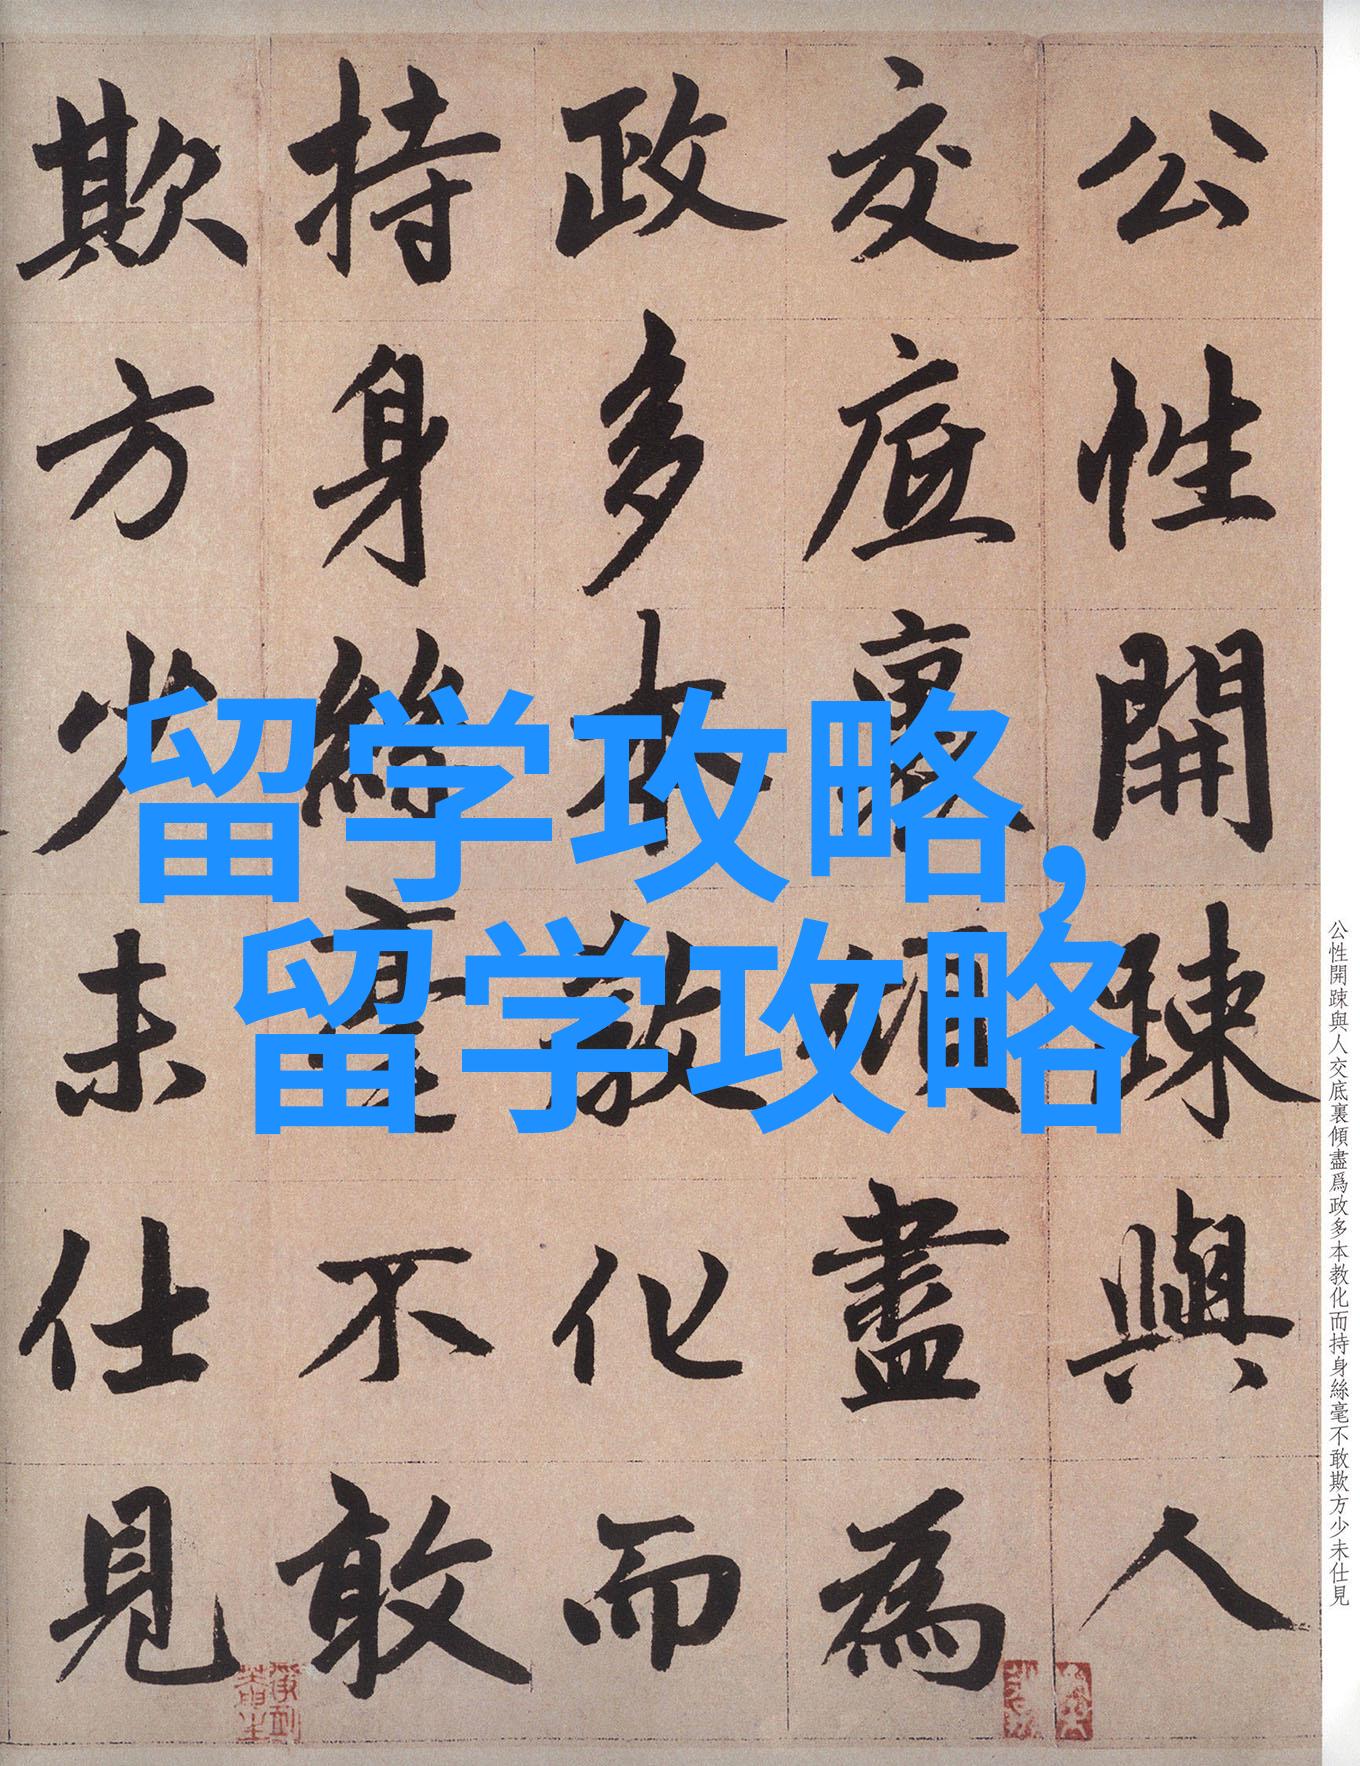 公性開踈與人
交底裏傾盡為
政多本教化而
持身絲毫不敢
欺方少未仕見
留学攻略,
留学攻略
公性開踈與人交底裏傾盡爲政多本教化而持身絲毫不敢欺方少未仕見